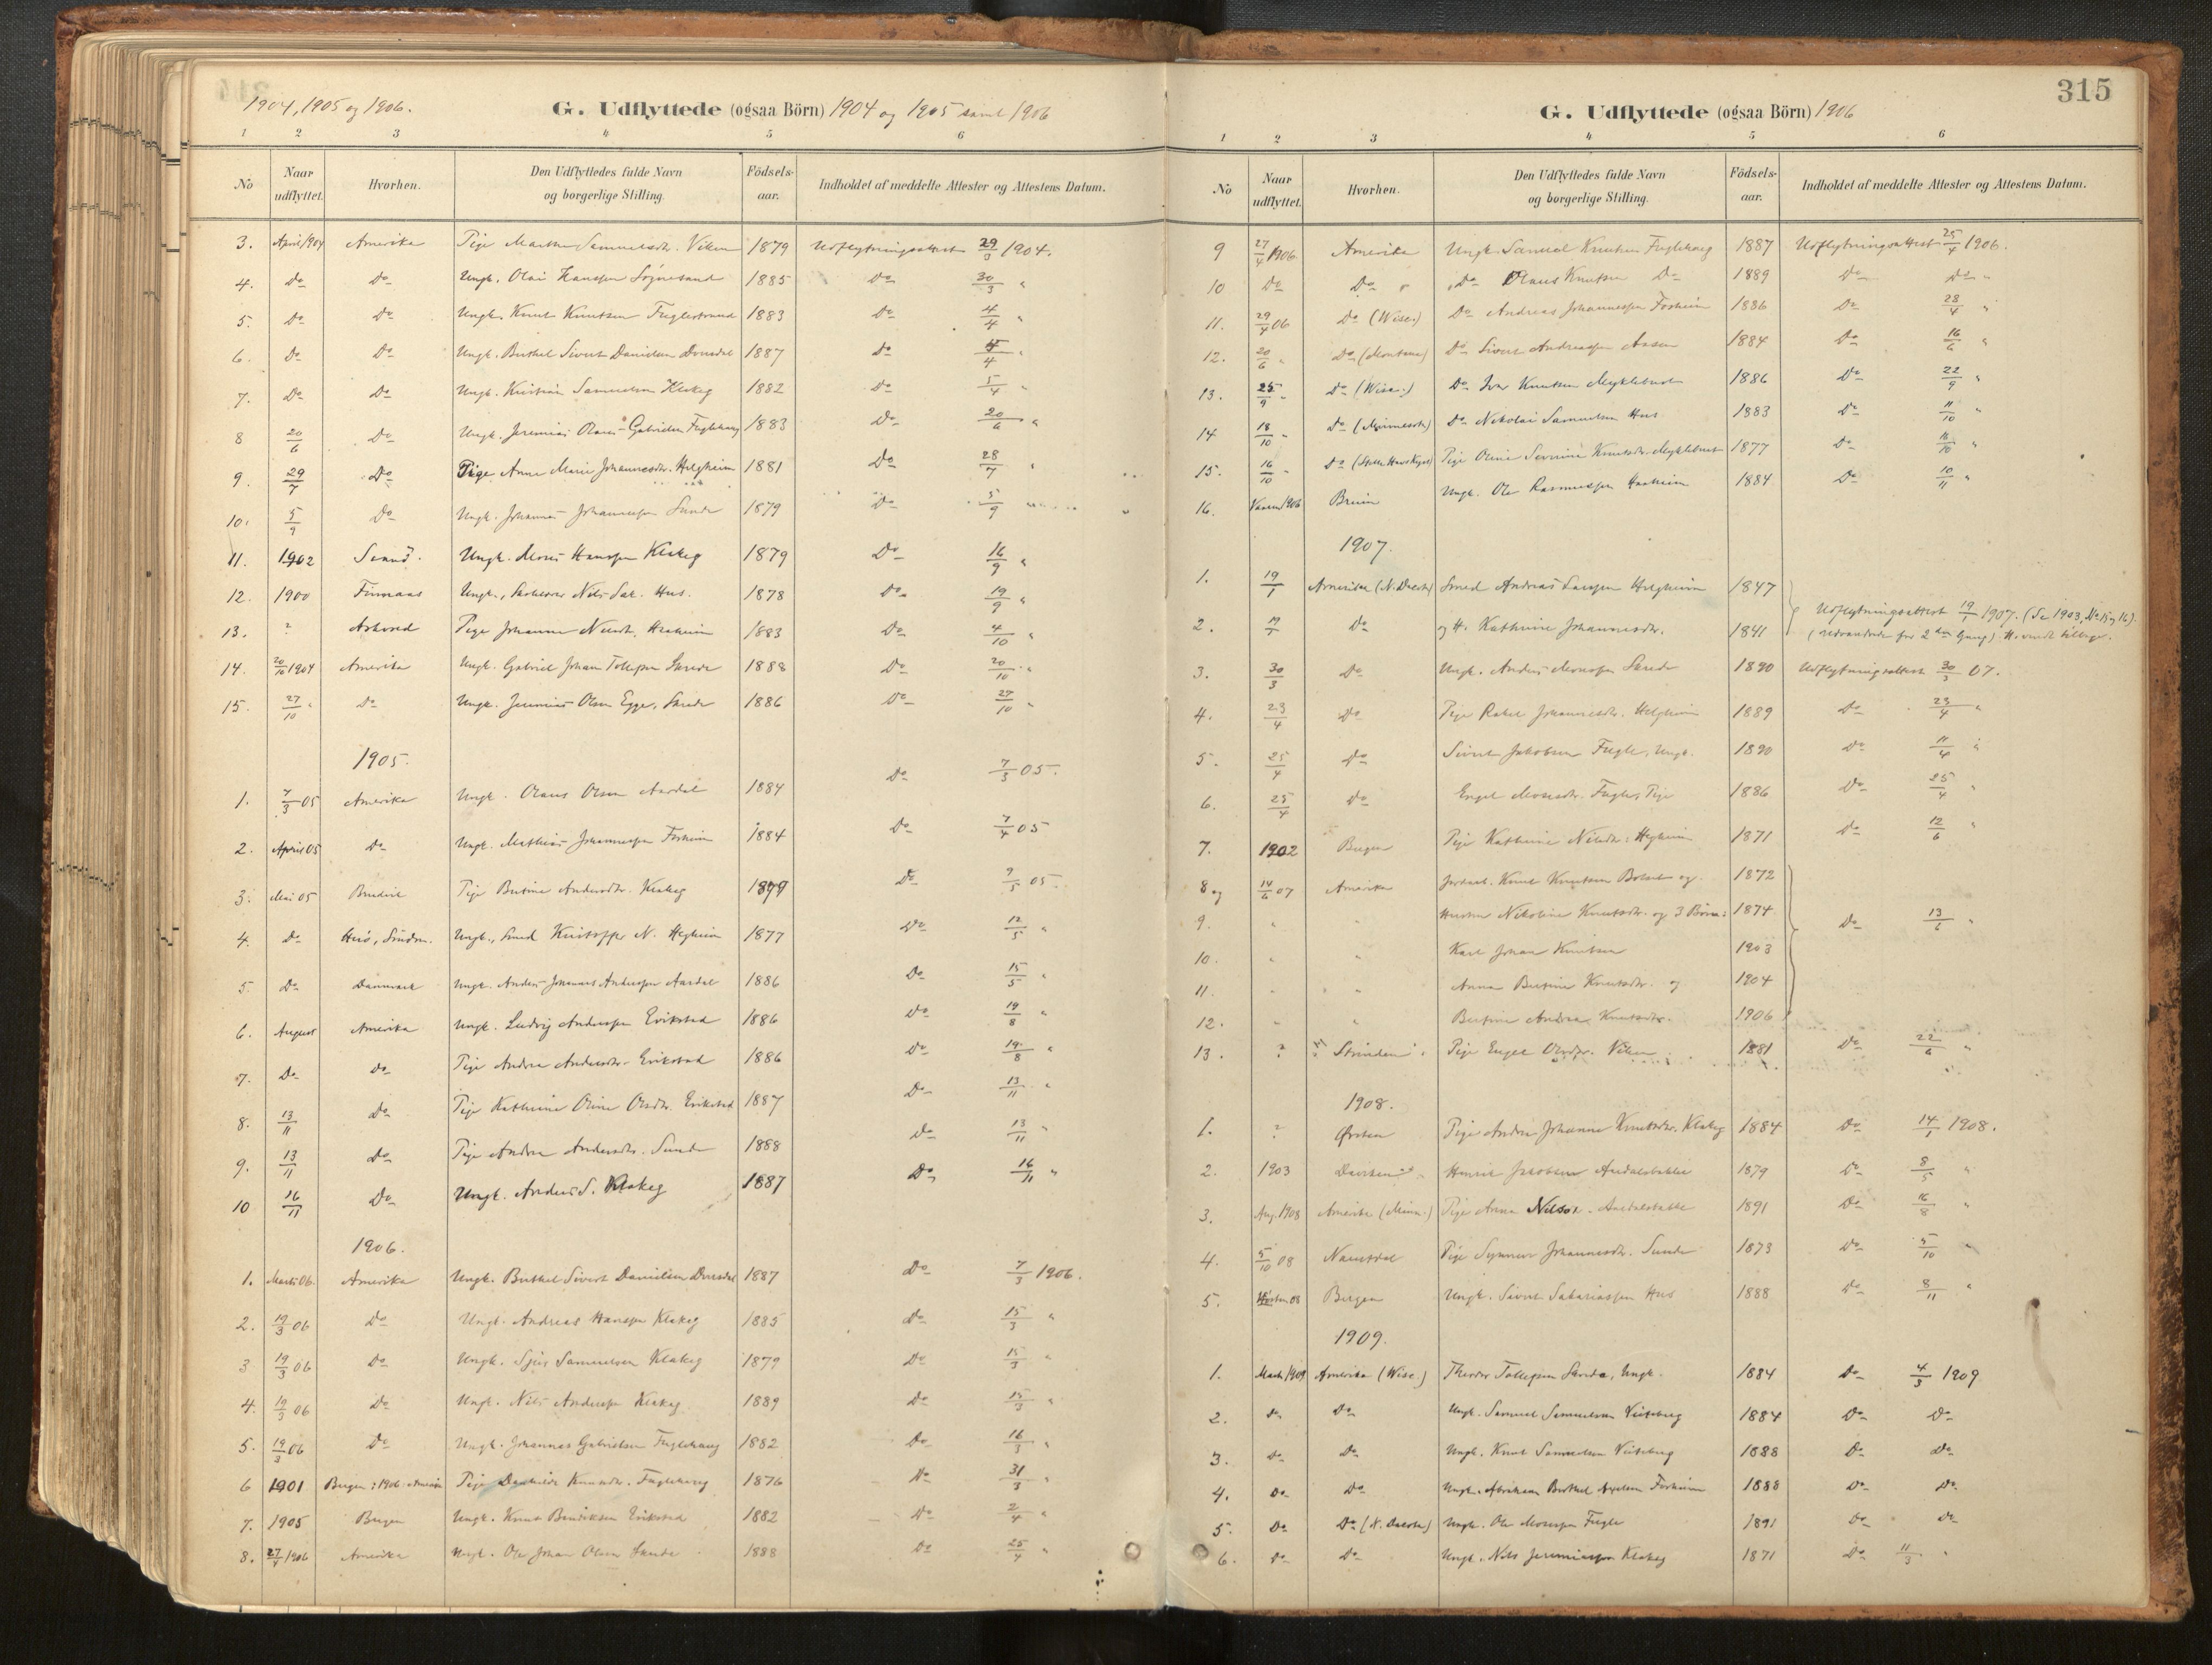 1904, 1905 og 1906.
G. Udflyttede (ogsaa Börn) 1904 og 1905 samt 1906
1 2 3 4 5 6
No Naar udflyttet. Hvorhen. Den Udflyttedes fulde Navn og borgerlige Stilling. Födsels-aar. Indholdet af meddelte Attester og Attestens Datum.
3. April/904 Amerika Pige Marthe Samuelsdr. Viken 1879 Udflytningsattest 29/3 1904.
4. Do Do Ungk. Olai Hanssen Sögnesand 1885 Do 30/3 "
5. Do Do Ungk. Knut Knutsen Fuglestrand 1883 Do 4/4 "
6. Do Do Ungk. Buthel Sivert Danielsen Dvergsdal 1887 Do /4 "
7. Do Do Ungk. Kristian Samuelsen Klakeg 1882 Do 5/4 "
8 20/6 Do Ungk. Jeremias Olaus Gabrielsen Fuglehaug 1883 Do 20/6 "
9. 29/7 Do Pige Anne Marie Johannesdr. Helgheim 1881 Do 28/7 "
10. 5/9 Do Ungk. Johannes Johannessen Sunde 1879 Do 5/9 "
11. 1902 Ungk. Moses Hanssen Klakeg 1879 Do 16/9 "
12. 1900 Finnaas Ungk., Nils Sak. Hus. 1878 Do 19/9 "
13. ? Askvold Pige Johanne 1883 Do 4/10 "
14. 20/10 1904 Amerika Ungk. Gabriel Johan Tollefsen Skrede 1888 Do 20/10 "
15. 27/10 " Do Ungk. Jeremias Olsen Egge, Skrede 1886 Do 27/10 "
1905.
1. 7/3 05 Amerika Ungk. Olaus Olsen Aardal 1884 Do 7/3 05.
2. April 05 Do Ungk. Mathias Johannessen Forheim 1884 Do 7/4 05
3. Mai 05 Pige Bertine Andersdr. Klakeg 1879 Do 9/5 05.
4. Do Ungk., Smed Kristoffer N. Hegheim 1877 Do 12/5 "
5. Do Danmark Ungk. Anders Johannes Anderssen Aardal 1886 Do 15/5 "
6. August Amerika Ungk. Ludvig Anderssen Eikestad 1886 Do 19/8 "
7. Do Do Pige Andrea Andersdr. Eikestad 1886 Do 19/8 "
8. 13/11 Do Pige Kathrine Oline Olsdr. Eikestad 1887 Do 13/11 "
9. 13/11 Do Pige Andrea Andersdr. Sunde 1888 Do 13/11 "
10 16/11 Do Ungk. Anders S. Klakeg 1887 Do 16/11 "
1906.
1. Marts 06. Amerika Ungk. Buthel Sivert Danielsen Dvergsdal 1887 Do 7/3 1906.
2. 19/3 06 Do Ungk. Andreas Hanssen Klakeg 1885 Do 15/3 "
3 19/3 06 Do Ungk. Sjur Samuelsen Klakeg 1879 Do 15/3 "
4. 19/3 06 Do Ungk. Nils Anderssen Klakeg 1889 Do 15/3 "
5. 19/3 06 Do Ungk. Johannes Gabrielsen Fuglehaug 1882 Do 16/3 "
6 1901 Bergen: 1906 Amerika Pige Knutsdr. Fuglehaug 1876 Do 31/3 "
7. 1905 Bergen Ungk. Knut Bendiksen Eikestad 1882 Do 2/4 "
8. 27/4 1906 Amerika Ungk. Ole Johan Olsen Skrede 1888 Do 25/4 "
315
G. Udflyttede (ogsaa Börn) 1906
1 2 3 4 5 6
No Naar udflyttet. Hvorhen. Den Udflyttedes fulde Navn og borgerlige Stilling. Födsels-aar. Indholdet af meddelte Attester og Attestens Datum.
9 27/4 1906. Amerika Ungk. Samuel Knutsen Fuglehaug 1887 Udflytningsattest 25/4 1906.
10 Do Do " Do Olaus Knutsen Do 1889 Do Do "
11. 29/4 06 Do (Wisc.) Do Andreas Johannessen Forheim 1886 Do 28/4 "
12. 20/6 " Do (Montana) Do Sivert Andreassen Aasen 1884 Do 16/6 "
13. 25/9 " Do (Wisc.) Do Ivar Knutsen Myklebust 1886 Do 22/9 "
14 18/10 " Do (Minnesota) Do Nikolai Samuelsen Hus 1883 Do 11/10 "
15. 16/10 " Do Pige Oline Severine Knutsdr. Myklebust 1877 Do 16/10 "
16. Vaaren 1906 Breim Ungk. Ole Rasmussen 1884 Do 10/11 "
1907.
1. 19/1 Amerika (N. Dakota) Smed Andreas Larssen Helgheim 1847 Udflytningsattest 19/1 1907. (Se 1903, No 15 og 16).
2. Do og H. Kathrine Johannesdr. 1841 (udvandrede for 2den Gang).
3. 30/3 Do Ungk. Anders Monssen Skrede 1890 Udflytningsattest 30/3 07.
4. 23/4 Do Pige Rakel Johannesdr. Helgheim 1889 Do 23/4 "
5. 25/4 Do Sivert Jakobsen Fugle, Ungk. 1890 Do 11/4 "
6. 25/4 Do Engel Mosesdr. Fugle, Pige 1886 Do 25/4 "
7. 1902 Bergen Pige Kathrine Nilsdr. Hegheim 1871 Do 12/6 "
8 og 14/6 07 Amerika Knut Knutsen og 1872
9. " " Hustru Nikoline Knutsdr. og 3 Börn: 1874 Do 13/6 "
10. " " Karl Johan Knutsen 1903
11. " " Anna Bertine Knutsdr. og 1904
12. " " Bertine Andrea Knutsdr. 1906
13. ? Strinden Pige Engel Olsdr. Viken 1881 Do 22/6 "
1908.
1. ? Örsten Pige Andrea Johanne Knutsdr. Klakeg 1884 Do 14/1 1908.
2. 1903 Daviken Henrik Jakobsen Aardalsbakke 1879 Do 8/5 "
3. Aug. 1908 Amerika (Minn.) Pige Anna Nilsdr. Aardalsbakke 1891 Do 16/8 "
4. 5/10 08 Namsdal Pige Synneve Johannesdr. Sunde 1873 Do 5/10 "
5. Hösten 08 Bergen Ungk. Sivert Sakariassen Hus 1888 Do 8/11 "
1909.
1. Marts 1909 Amerika (Wisc.) Theodor Tollefsen Skrede, Ungk. 1884 Do 4/3 1909
2. Do Do Ungk. Samuel Samuelsen 1884 Do Do
3. Do Do Ungk. Knut Samuelsen 1888 Do Do
4. Do Do Ungk. Abraham Buthel Forheim 1888 Do Do
5. Do Do (N. Dakota) Ungk. Ole Mosessen Fugle 1891 Do Do
6. Do Do Ungk. Nils Jeremiassen Klakeg 1871 Do 11/3 "